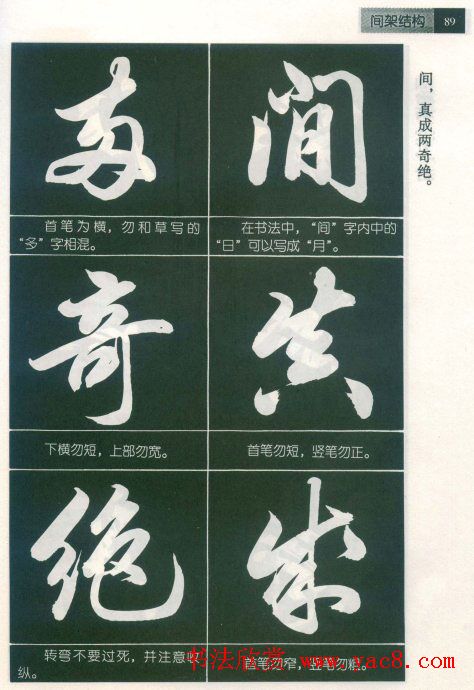 间架结构 89
间，真成两奇绝。
閒
在书法中，“间”字内中的
“日”可以写成“月”。
真
首笔勿短，竖笔勿正。
成
首笔勿窄，竖笔勿
两
首笔为横，勿和草写的
“多”字相混。
奇
下横勿短，上部勿宽。
绝
转弯不要过死，并注意收
纵。
书法欣赏 www.yac8.com